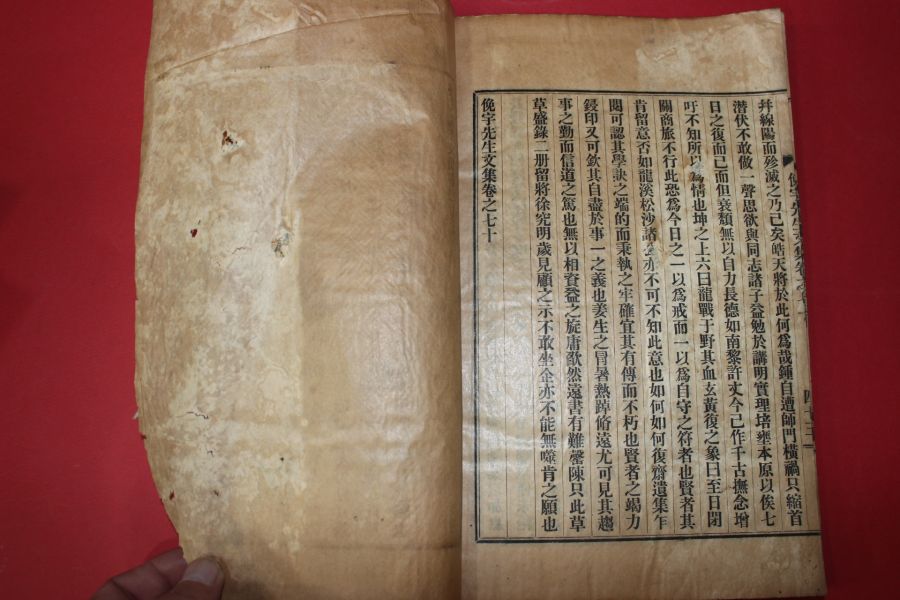 俛宇先生文集卷之七十 四十三
幷線陽而殄滅之乃已矣皓天將於此何爲哉鍾自遭師門橫禍只縮首
潛伏不敢做一聲思欲與同志諸子益勉於講明實理培壅本原以俟七
日之復而已而但衰頹無以自力長德如南黎許丈今已作千古撫念增
吁不知所以爲情也坤之上六曰龍戰于野其血玄黃復之象曰至日閉
關商旅不行此恐爲今日之一以爲戒而一以爲自守之符者也賢者其
肯留意否如龍溪松沙諸公亦不可不知此意也如何如何復齋遺集乍
閱可認其學訣之端的而秉執之牢確宜其有傳而不朽也賢者之竭力
鋟印又可欽其自盡於事一之義也姜生之冒暑熱踔脩遠尤可見其趨
事之勤而信道之篤也無以相資益之旋庸歉然遠書有難罄陳只此草
草盛錄二册留將徐究明歲見顧之示不敢坐企亦不能無噬肯之願也
俛宇先生文集卷之七十